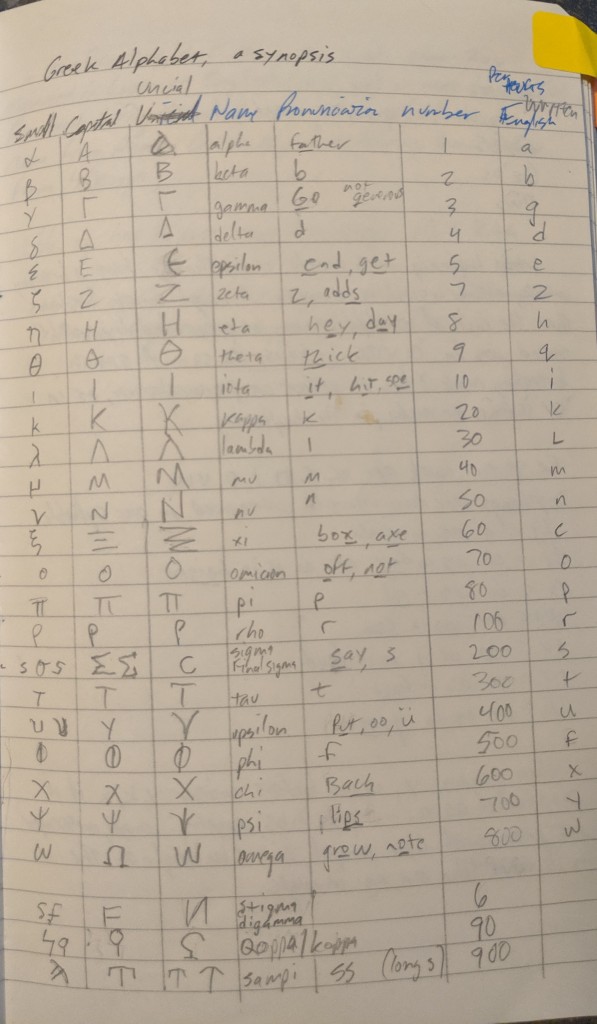 Greek Alphabet, a synopsis
Uncial
Small Capital Name Pronunciation number Written English
α A alpha father 1 a
β B B beta b 2 b
γ Γ Γ gamma Go not generous 3 g
δ Δ Δ delta d 4 d
ε E Є epsilon end, get 5 e
ζ Z Z zeta z, adds 7 z
η H H eta hey, day 8 h
θ Θ Θ theta thick 9 q
ι Ι Ι iota it, hit, 10 i
κ K K kappa k 20 k
λ Λ λ lambda l 30 L
μ M M mu m 40 m
ν N N nu n 50 n
ξ Ξ Ξ xi box, axe 60 c
ο O O omicron off, not 70 o
π Π Π pi p 80 p
ρ P P rho r 100 r
ς σ s Σ Σ C sigma Final sigma say, s 200 s
τ T T tau t 300 t
υ υ Y Y upsilon Put, oo, ü 400 u
Φ Φ Φ phi f 500 f
χ X X chi Bach 600 x
ψ Ψ Ψ psi lips 700 y
ω Ω W omega grow, note 800 w
F И Stigma digamma 6
Ϟ q Ϙ Qoppa/kappa 90
T T T sampi ss (long s) 900